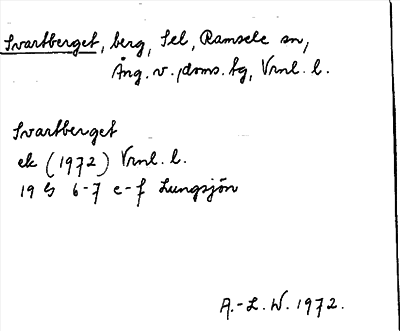 Svartberget, berg, Sel, Ramsele sn,
Ång. v. doms. tg, Vrnl. l.
Svartberget
ek (1972) Vrnl. l.
19 G 6-7 e-f Lungsjön
A.-L. W. 1972.